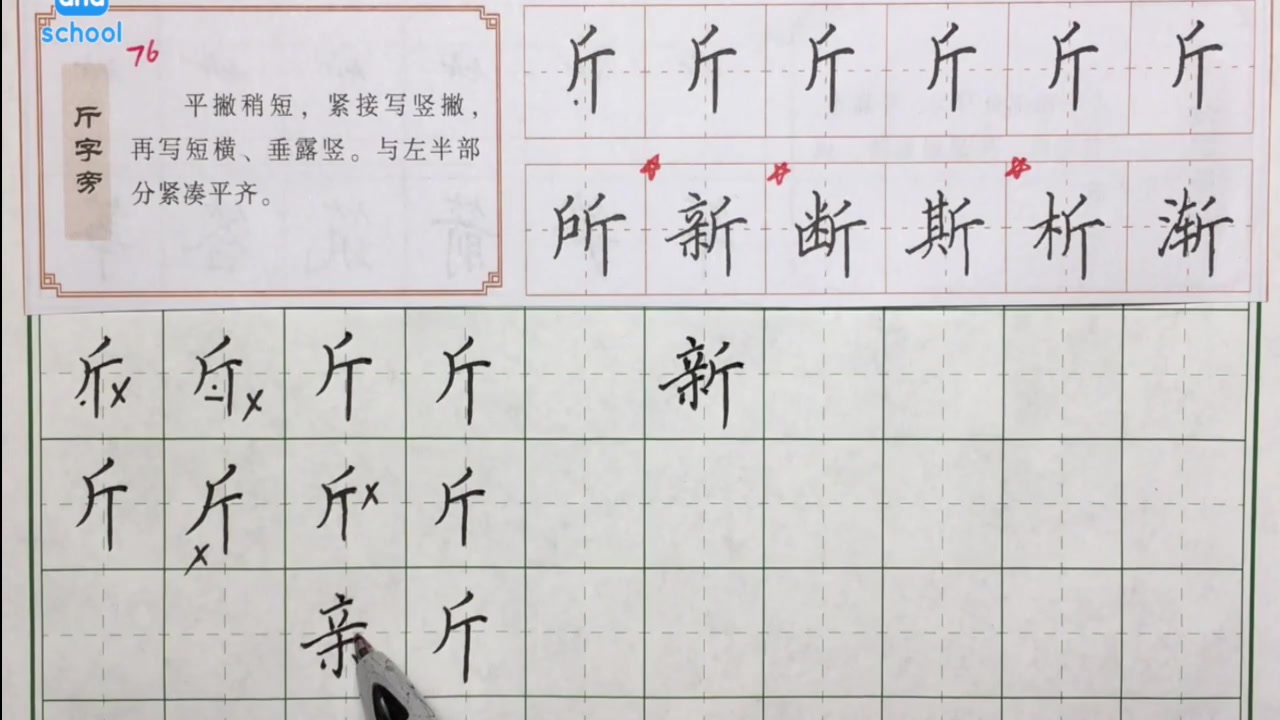 and
school
76
斤字旁
平撇稍短，紧接写竖撇，
再写短横、垂露竖。与左半部
分紧凑平齐。
斤 斤 斤 斤 斤 斤
所 新 断 斯 析 渐
斤 x 斤 x 斤 斤 新
斤 斤 x 斤 x 斤
亲 斤